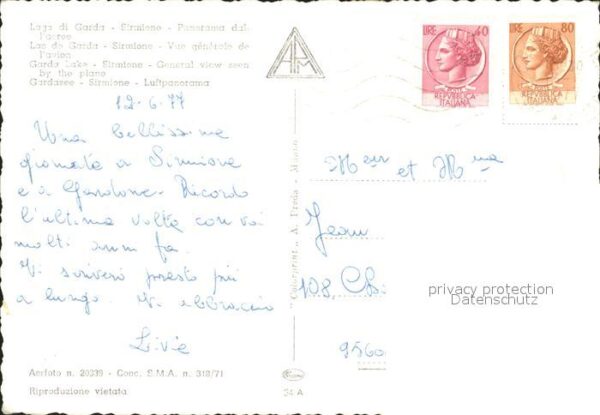 Lago di Garda - Sirmione - Panorama dal-
l'aereo
Lac de Garda - Sirmione - Vue générale de
l'avion
Garda Lake - Sirmione - General view seen
by the plane
Gardasee - Sirmione - Luftpanorama
12.6.77
Una bellissima
giornata a Sirmione
e a Gardone. Ricordo
l'ultima volta con voi
molti anni fa.
Vi scriverò presto più
a lungo. Vi abbraccio
Livia
Aerfoto n. 20339 - Conc. S.M.A. n. 318/71
Riproduzione vietata
34 A
LIRE 40
POSTE
REPVBBLICA
ITALIANA
LIRE 80
POSTE
REPVBBLICA
ITALIANA
et
Jean
108, Ch.
9560
privacy protection
Datenschutz